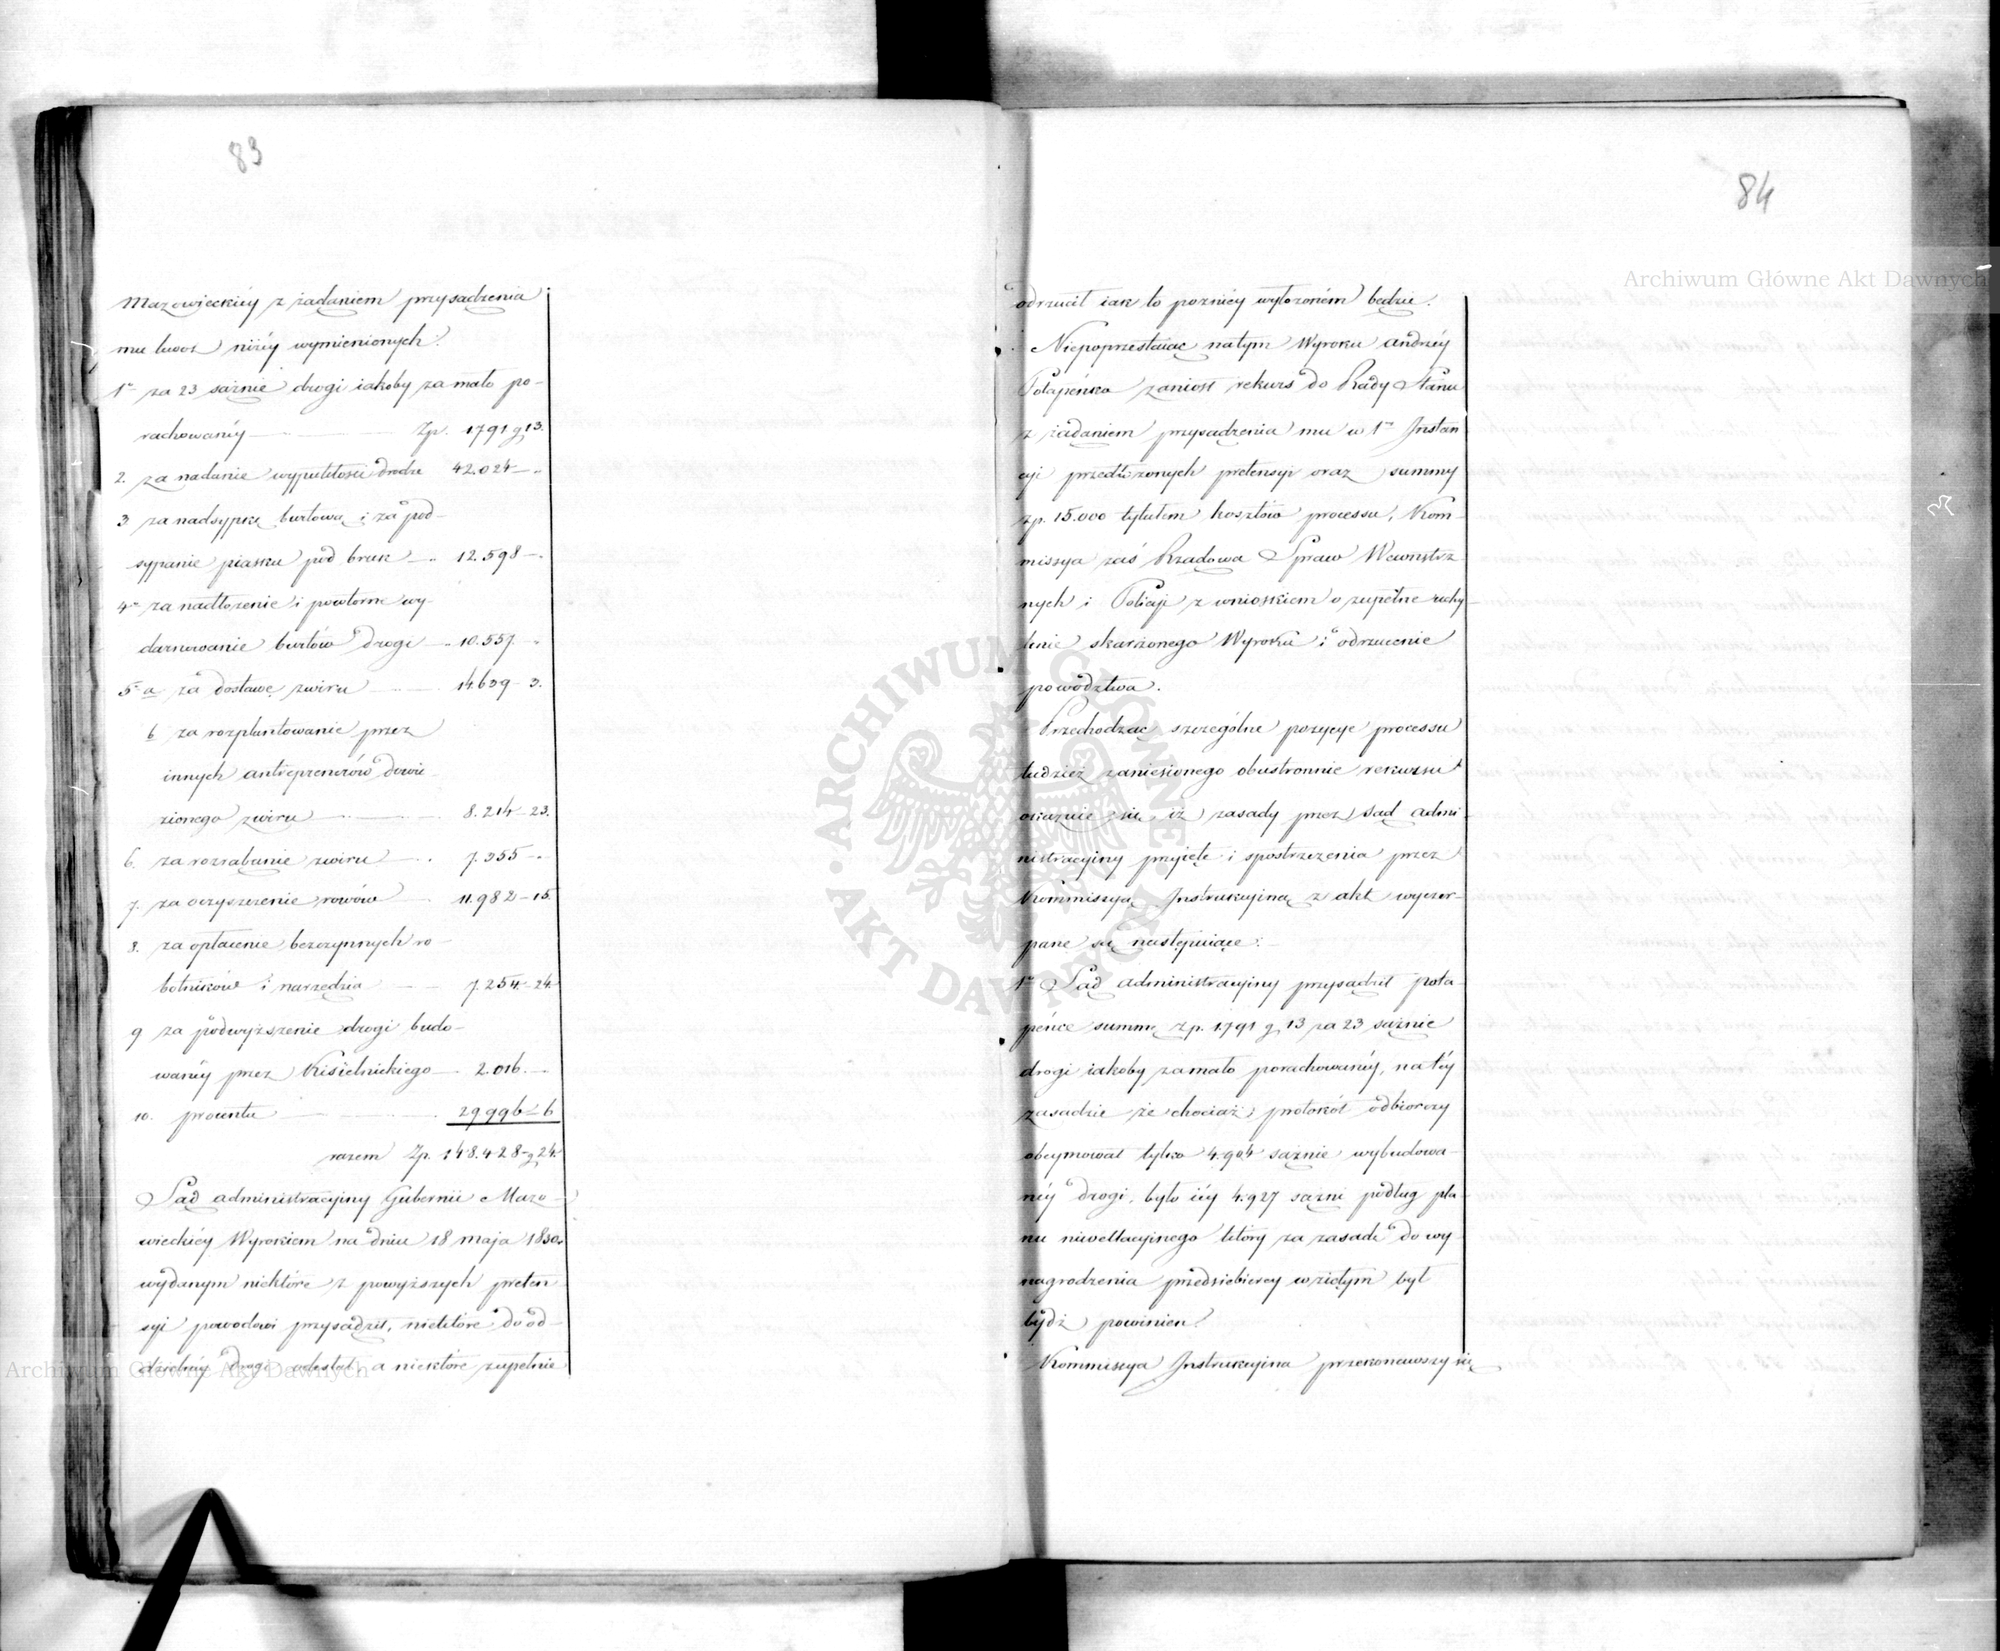 83
Mazowieckiéy z żądaniem przysądzenia
mu kwot niżéy wymienionych.
1° za 23 sążnie drogi iakoby za mało po-
rachowanéy Zp. 1791 g 13.
2. za nadanie wypukłości drodze 42.024 —
3 za nadsypkę burtową i za pod-
sypanie piasku pod bruk — 12.598 —
4° za nadłożenie i powtórne wy-
darnowanie burtów drogi — 10.557. —
5° a za dostawę żwiru — 14.639 – 3.
b za rozplantowanie przez
innych antreprenerów dowie-
zionego żwiru — 8.214 – 23.
6. za rozrabanie żwiru — 7.355 —
7. za oczyszczenie rowów — 11.982 – 15.
8. za opłacenie bezczynnych ro-
botników i narzędzia — 7.254. – 24.
9 za podwyższenie drogi budo-
wanéy przez Kisielnickiego — 2.016. —
10. procentu — 29.996 – 6
razem Zp. 148.428 g 24.
Sąd administracyjny Gubernii Mazo-
wieckiéy Wyrokiem na dniu 18 maja 1830.
wydanym niektóre z powyższych preten-
syi powodowi przysądził, niektóre do od-
dzielnéy drogi odesłał, a niektóre zupełnie
84
odrzucił iak to poźniéy wyłożoném będzie.
Niepoprzestaiąc natym Wyroku Andrzéy
Potapeńko zaniosł rekurs do Rady Stanu
z żądaniem przysądzenia mu w 1° Instan
cyi przedłożonych pretensyi oraz summy
zp. 15.000 tytułem kosztów processu, Kom-
missya zaś Rządowa Spraw Wewnętrz-
nych i Policyi z wnioskiem o zupełne uchy-
lenie skarżonego Wyroku i odrzucenie
powództwa.
Przechodząc szczególne pozycye processu
tudzież zaniesionego obustronnie rekursu
okazuie się, iż zasady przez Sąd admi-
nistracyiny przyięte i spostrzeżenia przez
Kommissyą Instrukcyiną z akt wyczer-
pane są następuiące:
1° Sąd administracyiny przysądził Pota-
peńce summę zp. 1.791 g 13 za 23 sążnie
drogi iakoby zamało porachowanéy, na téy
zasadzie że chociaż protokół odbiorczy
obeymował tylko 4.904 sążnie wybudowa-
néy drogi, było iéy 4.927 sążni podług pla-
nu niwellacyjnego który za zasadę do wy-
nagrodzenia przedsiębiercy wziętym był
bydź powinien.
Kommissya Instrukcyina przekonawszy się
Archiwum Główne Akt Dawnych
Archiwum Główne Akt Dawnych
ARCHIWUM GŁÓWNE AKT DAWNYCH